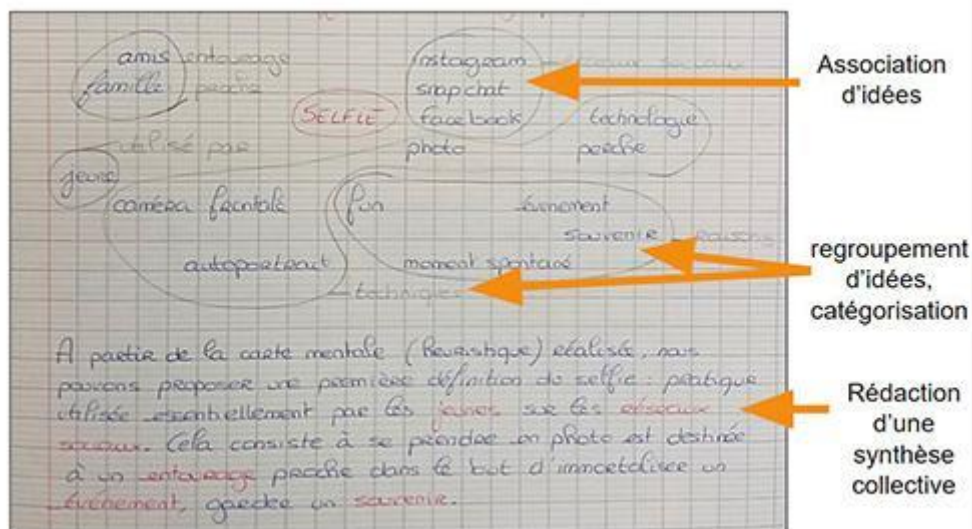 amis entourage
famille proche
instagram réseaux sociaux
snapchat
SELFIE facebook technologie
utilisé par photo perche
jeune
caméra frontale fun événement
souvenir raisons
autoportrait moment spontané
technique
A partir de la carte mentale (heuristique) réalisée, nous
pouvons proposer une première définition du selfie : pratique
utilisée essentiellement par les jeunes sur les réseaux
sociaux. Cela consiste à se prendre en photo est destinée
à un entourage proche dans le but d'immortaliser un
événement, garder un souvenir.
Association
d'idées
regroupement
d'idées,
catégorisation
Rédaction
d'une
synthèse
collective